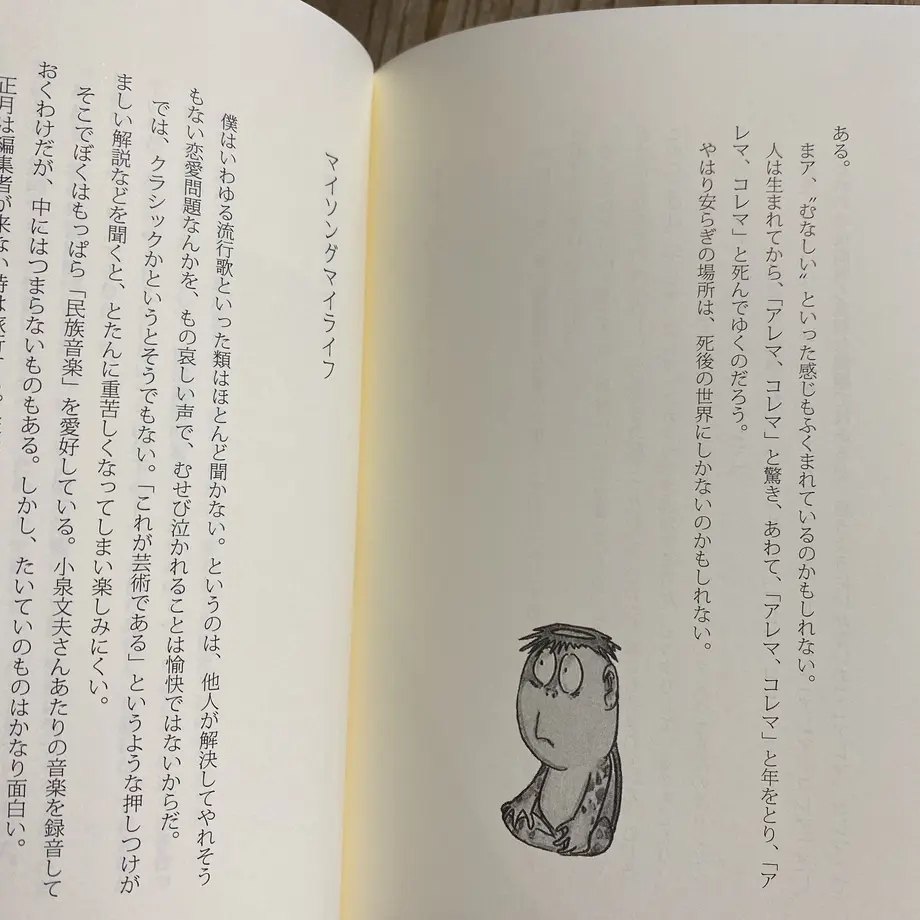 ある。
まア、〝むなしい〟といった感じもふくまれているのかもしれない。
人は生まれてから、「アレマ、コレマ」と驚き、あわて、「アレマ、コレマ」と年をとり、「ア
レマ、コレマ」と死んでゆくのだろう。
やはり安らぎの場所は、死後の世界にしかないのかもしれない。
マイソングマイライフ
僕はいわゆる流行歌といった類はほとんど聞かない。というのは、他人が解決してやれそう
もない恋愛問題なんかを、もの哀しい声で、むせび泣かれることは愉快ではないからだ。
では、クラシックかというとそうでもない。「これが芸術である」というような押しつけが
ましい解説などを聞くと、とたんに重苦しくなってしまい楽しみにくい。
そこでぼくはもっぱら「民族音楽」を愛好している。小泉文夫さんあたりの音楽を録音して
おくわけだが、中にはつまらないものもある。しかし、たいていのものはかなり面白い。
正月は編集者が来ない時は旅行